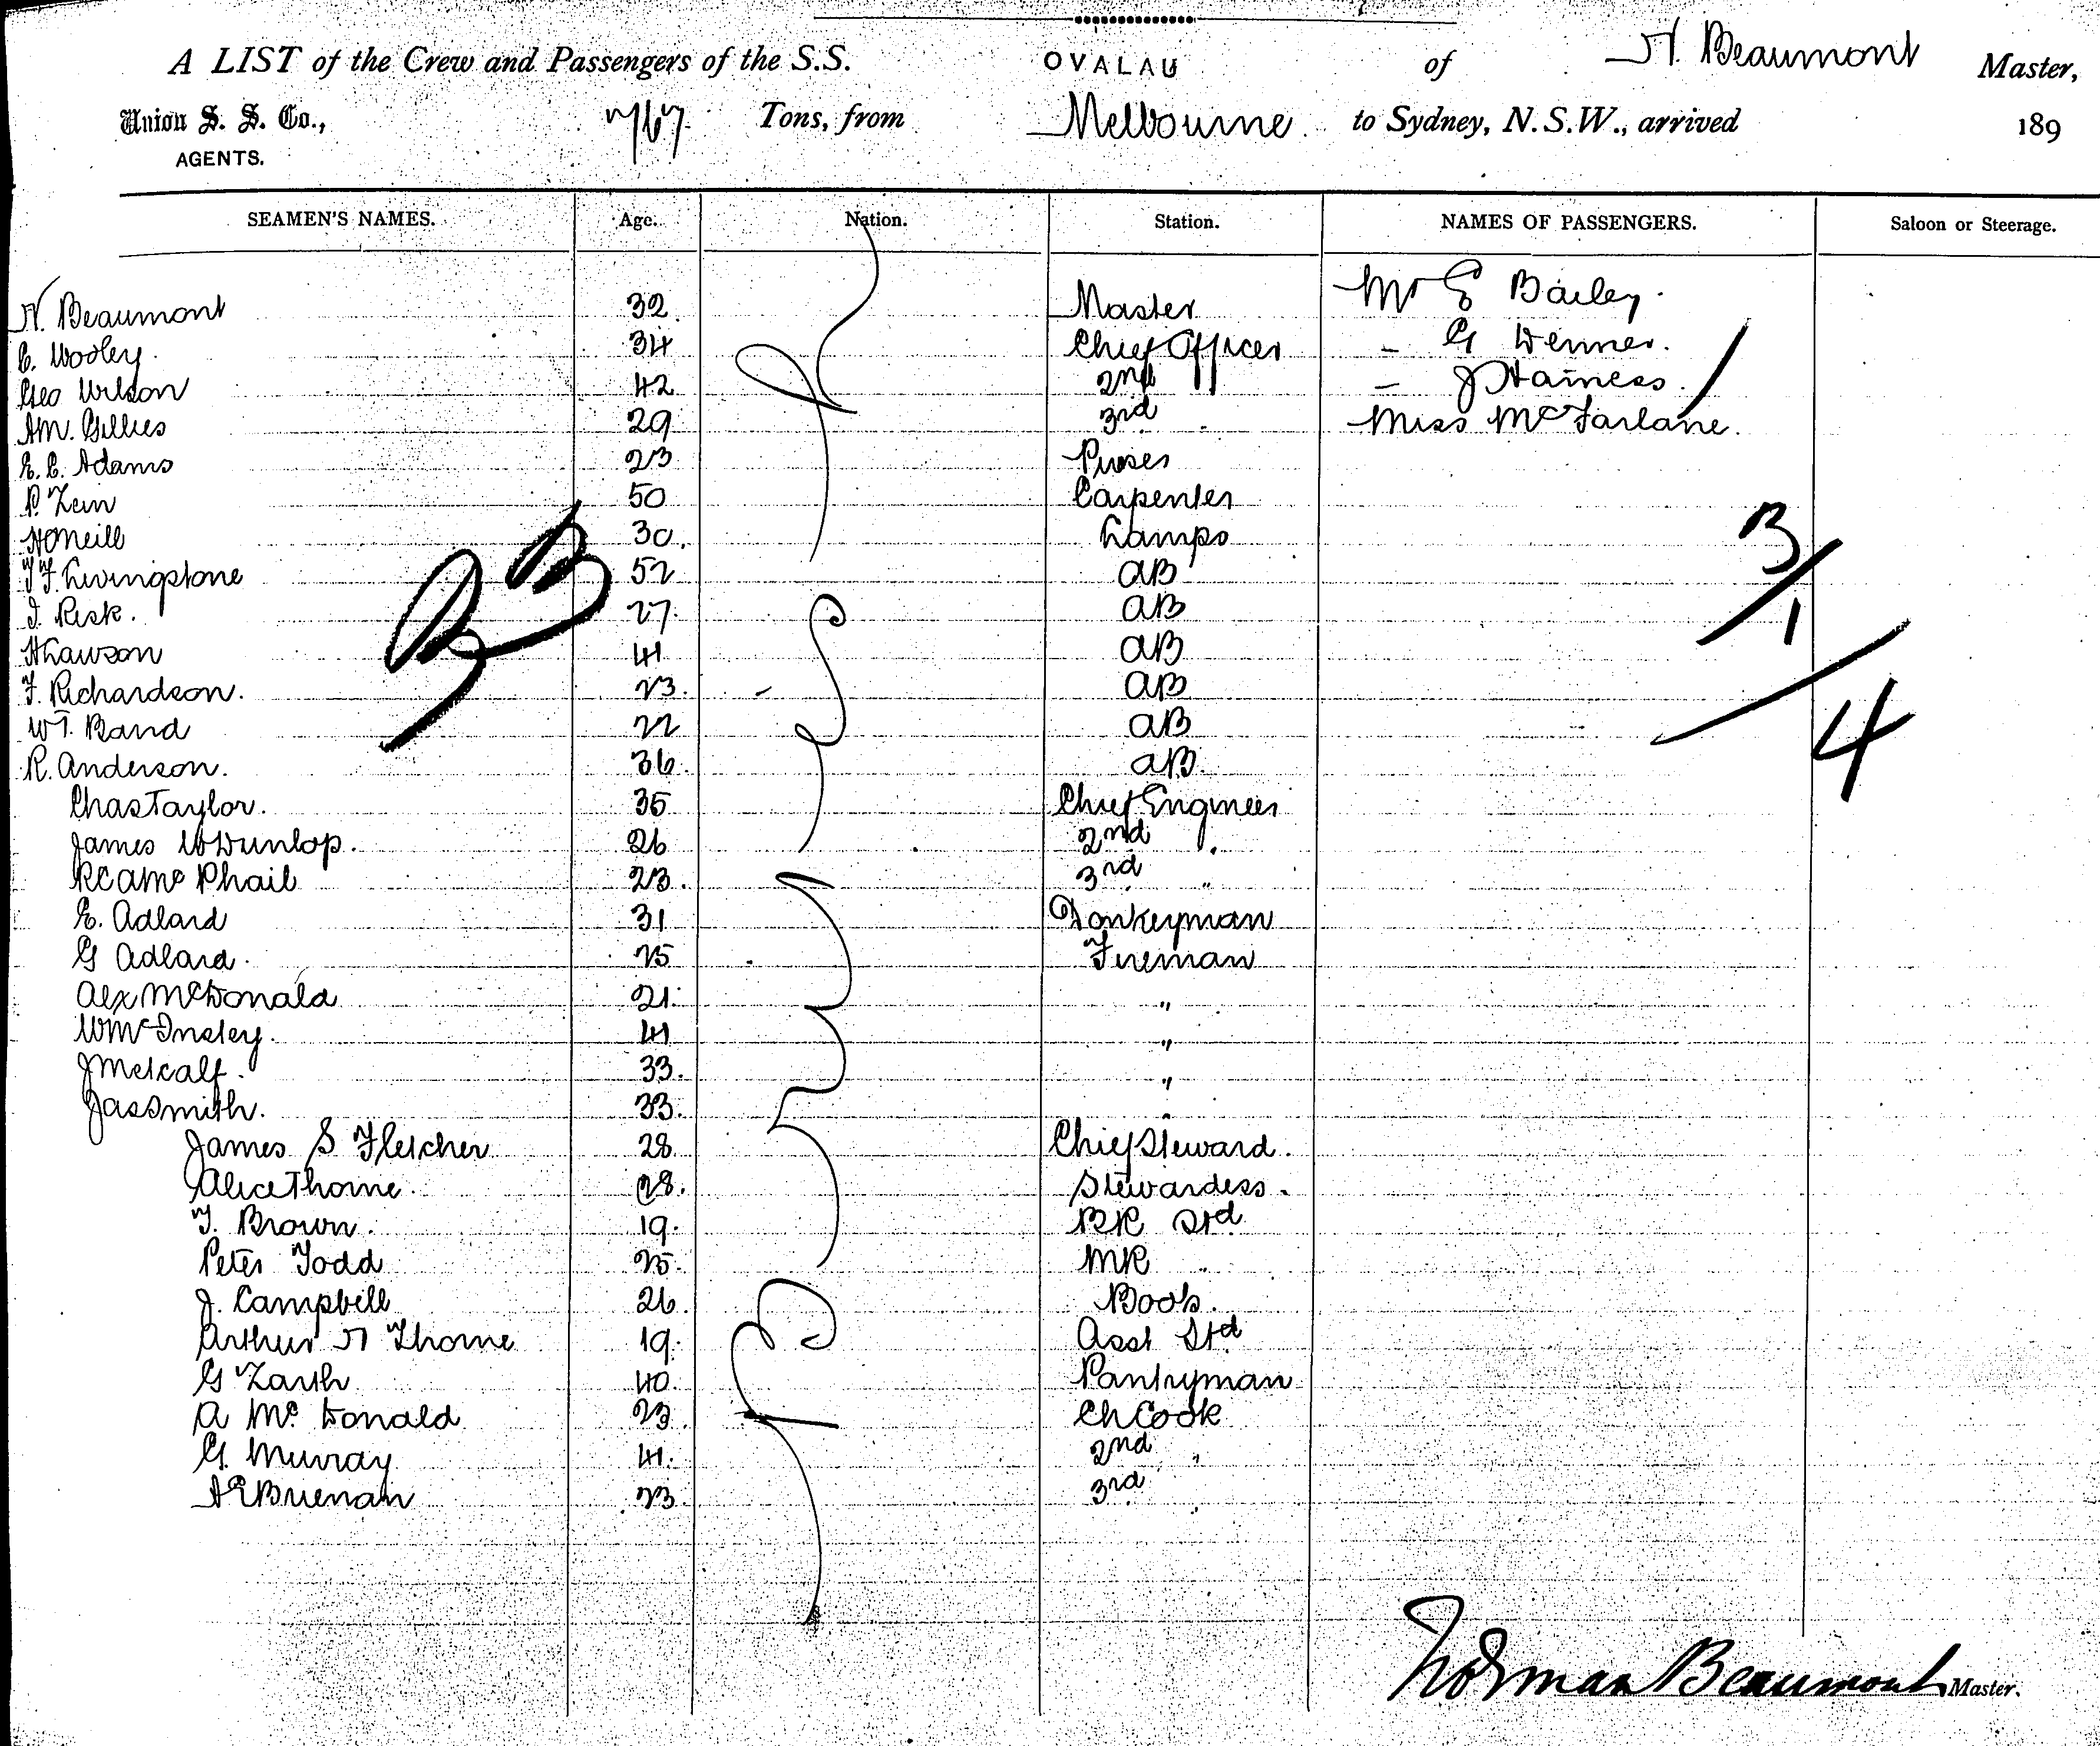 A LIST of the Crew and Passengers of the S.S. OVALAU of N. Beaumont Master,
Union S. S. Co., 767 Tons, from Melbourne to Sydney, N.S.W., arrived 189
AGENTS.
SEAMEN'S NAMES. Age. Nation. Station. NAMES OF PASSENGERS. Saloon or Steerage.
N. Beaumont 32 Master Mr E Bailey.
C. Wooley. 34 Chief Officer - G Wenner.
Geo Wilson 42 2nd - J Harness.
AM. Gillies 29 3rd Miss McFarlane.
E. C. Adams 23 Purser
P. Zein 50 Carpenter
H ONeill 30. Lamps
T F. Livingstone 52 AB
J. Risk. 27. AB
H Lawson 41 AB
F. Richardson. 23. AB
W T. Rand 22 AB
R. Anderson. 36. AB.
Chas Taylor. 35 Chief Engineer
James W Dunlop. 26 2nd "
R C A Mc Phail 23. 3rd "
E. Adlard 31 Donkeyman
G Adlard. 25 Fireman
Alex McDonald 21. "
W McInsley. 41 "
J Metcalf. 33. "
Jas Smith. 33. "
James S Fletcher 28. Chief Steward.
Alice Thorne. 28. Stewardess.
T. Brown. 19. BR Std
Peter Todd 25. MR "
J. Campbell 26. Boots.
Arthur N Thorne 19. Asst Std
G Zarth 40. Pantryman
A Mc Donald 23. Ch Cook
G. Murray 41. 2nd "
A E Buenan 23. 3rd
3/1
4
Norman Beaumont Master.